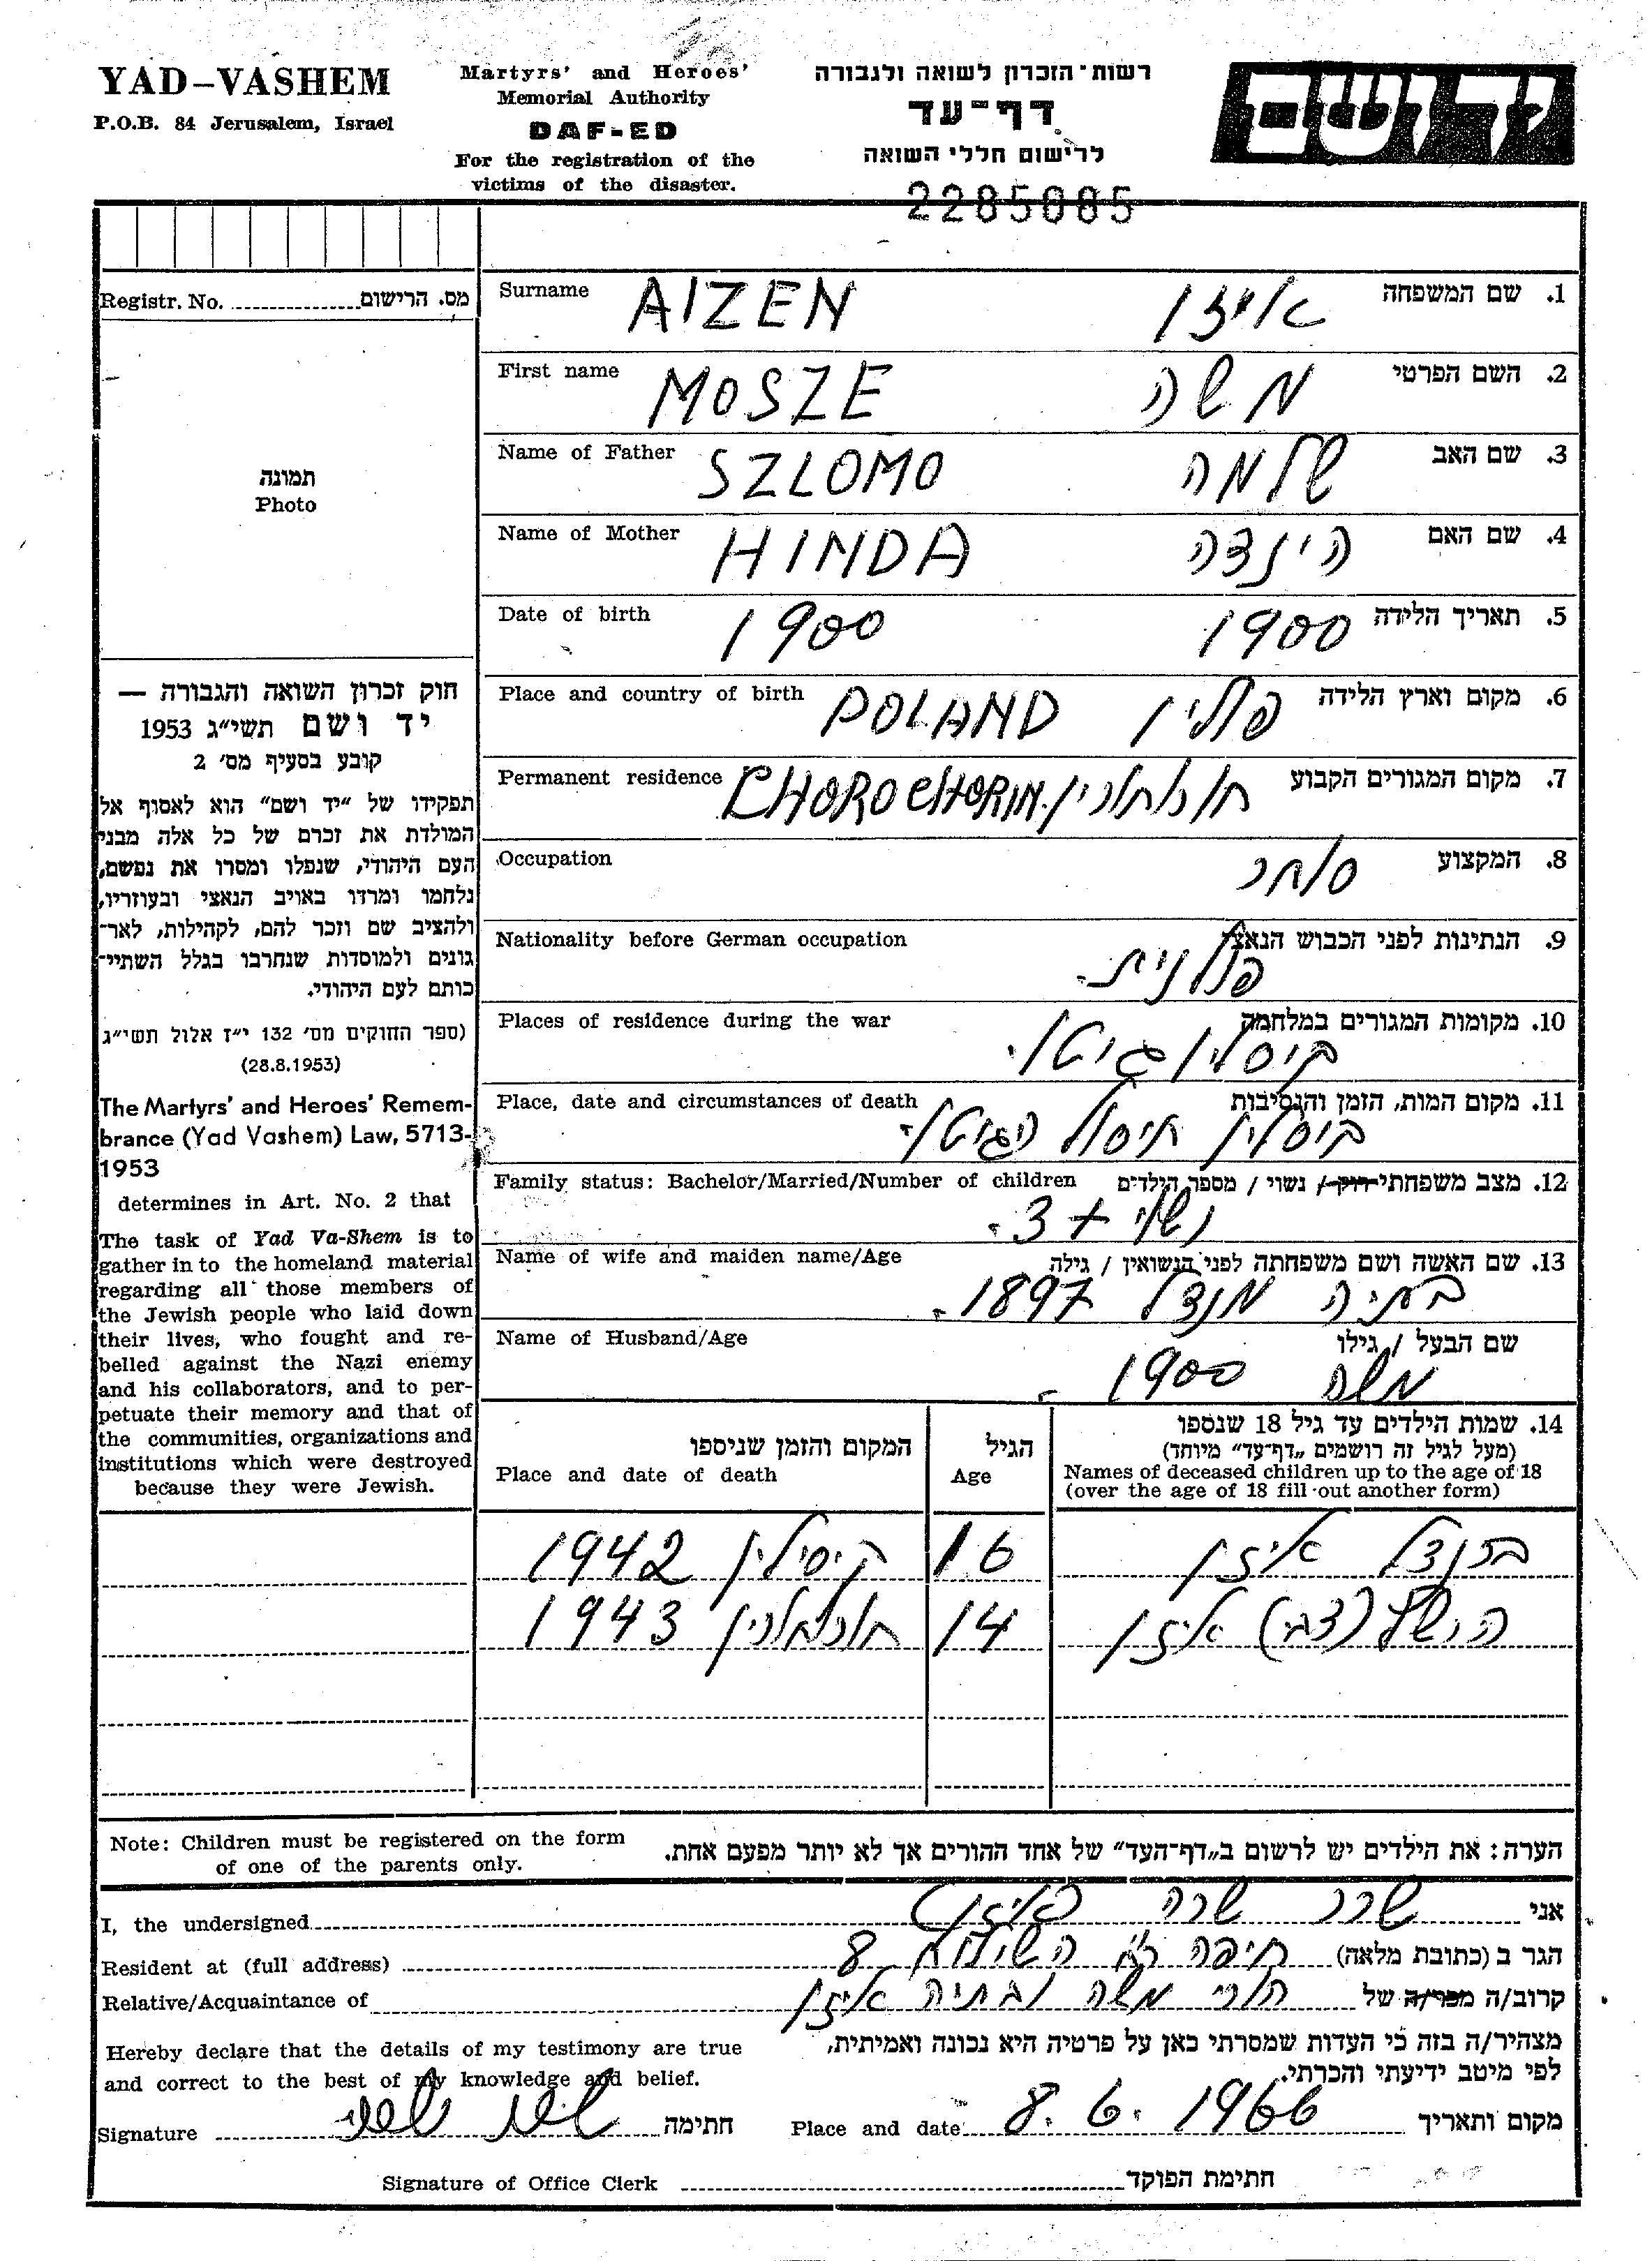 YAD-VASHEM
P.O.B. 84 Jerusalem, Israel
Martyrs' and Heroes'
Memorial Authority
DAF-ED
For the registration of the
victims of the disaster.
רשות־הזכרון לשואה ולגבורה
דף־עד
לרישום חללי השואה
ידושם
2285085
Registr. No. מס. הרישום
תמונה
Photo
חוק זכרון השואה והגבורה —
יד ושם תשי״ג 1953
קובע בסעיף מס׳ 2
תפקידו של ״יד ושם״ הוא לאסוף אל
המולדת את זכרם של כל אלה מבני
העם היהודי, שנפלו ומסרו את נפשם,
נלחמו ומרדו באויב הנאצי ובעוזריו,
ולהציב שם וזכר להם, לקהילות, לאר־
גונים ולמוסדות שנחרבו בגלל השתיי־
כותם לעם היהודי.
(ספר החוקים מס׳ 132 י״ז אלול תשי״ג
(28.8.1953)
The Martyrs' and Heroes' Remem-
brance (Yad Vashem) Law, 5713-
1953
determines in Art. No. 2 that
The task of Yad Va-Shem is to
gather in to the homeland material
regarding all those members of
the Jewish people who laid down
their lives, who fought and re-
belled against the Nazi enemy
and his collaborators, and to per-
petuate their memory and that of
the communities, organizations and
institutions which were destroyed
because they were Jewish.
Surname AIZEN איזן 1. שם המשפחה
First name MOSZE משה 2. השם הפרטי
Name of Father SZLOMO שלמה 3. שם האב
Name of Mother HINDA הינדה 4. שם האם
Date of birth 1900 1900 5. תאריך הלידה
Place and country of birth POLAND פולין 6. מקום וארץ הלידה
Permanent residence CHOROCHORIN חורוחורין 7. מקום המגורים הקבוע
Occupation סוחר 8. המקצוע
Nationality before German occupation 9. הנתינות לפני הכבוש הנאצי
פולנית.
Places of residence during the war 10. מקומות המגורים במלחמה
קיסלין גיטו.
Place, date and circumstances of death 11. מקום המות, הזמן והנסיבות
קיסלין חיסול הגיטו.
Family status: Bachelor/Married/Number of children 12. מצב משפחתי רווק / נשוי / מספר הילדים
נשוי + 3.
Name of wife and maiden name/Age 13. שם האשה ושם משפחתה לפני הנשואין / גילה
בתיה מנדל 1897.
Name of Husband/Age שם הבעל / גילו
משה 1900
14. שמות הילדים עד גיל 18 שנספו
(מעל לגיל זה רושמים „דף־עד״ מיוחד)
Names of deceased children up to the age of 18
(over the age of 18 fill out another form)
הגיל
Age
המקום והזמן שניספו
Place and date of death
איזן 16 קיסילין 1942
הירש (צבי) איזן 14 חורוחורין 1943
Note: Children must be registered on the form
of one of the parents only.
הערה: את הילדים יש לרשום ב„דף־העד״ של אחד ההורים אך לא יותר מפעם אחת.
I, the undersigned שרר שרה אני
Resident at (full address) חיפה 8 הגר ב (כתובת מלאה)
Relative/Acquaintance of הורי משה ובתיה איזן קרוב/ה מכר/ה של
Hereby declare that the details of my testimony are true
and correct to the best of my knowledge and belief.
מצהיר/ה בזה כי העדות שמסרתי כאן על פרטיה היא נכונה ואמיתית,
לפי מיטב ידיעתי והכרתי.
Signature חתימה Place and date 8.6.1966 מקום ותאריך
Signature of Office Clerk חתימת הפוקד